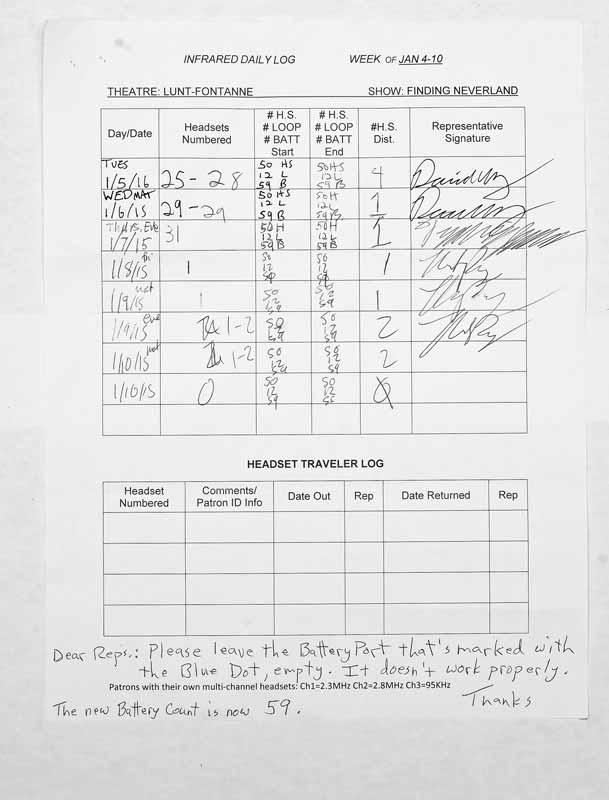 INFRARED DAILY LOG WEEK OF JAN 4-10
THEATRE: LUNT-FONTANNE SHOW: FINDING NEVERLAND
Day/Date
Headsets Numbered
# H.S. # LOOP # BATT Start
# H.S. # LOOP # BATT End
#H.S. Dist.
Representative Signature
TUES 1/5/16 25 - 28 50 HS 12 L 59 B 50 HS 12 L 59 B 4
WED MAT 1/6/15 29 - 29 50 HS 12 L 59 B 50 H 12 L 59 B 1
THURS, EVE 1/7/15 31 50 H 12 L 59 B 50 H 12 L 59 B 1
1/8/15 Fri 1 50 12 59 50 12 59 1
1/9/15 mat 1 50 12 59 50 12 59 1
1/9/15 eve 1-2 50 12 59 50 12 59 2
1/10/15 mat 1-2 50 12 59 50 12 59 2
1/10/15 0 50 12 59 50 12 0
HEADSET TRAVELER LOG
Headset Numbered
Comments/ Patron ID Info
Date Out
Rep
Date Returned
Rep
Dear Reps.: Please leave the Battery Port that's marked with
the Blue Dot, empty. It doesn't work properly.
Patrons with their own multi-channel headsets: Ch1=2.3MHz Ch2=2.8MHz Ch3=95KHz
Thanks
The new Battery Count is now 59.